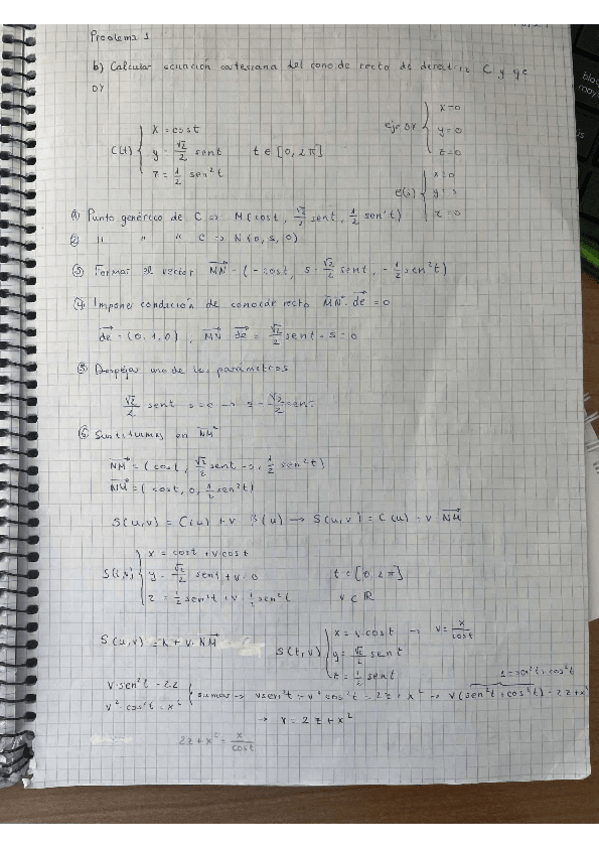 Problema 1
b) Calcular ecuación cartesiana del conoide recto de directriz C y eje
OY
C(t) { x = cost
y = √2/2 sent t ∈ [0, 2π]
z = 1/2 sen²t
eje OY { x=0
y=0
z=0
e(s) { x=0
y=s
z=0
① Punto genérico de C => M(cost, √2/2 sent, 1/2 sen²t)
② " " " C => N(0, s, 0)
③ Formar el vector MN = (-cost, s - √2/2 sent, -1/2 sen²t)
④ Imponer condición de conoide recto MN · de = 0
de = (0, 1, 0), MN de = √2/2 sent - s = 0
⑤ Despejar uno de los parámetros
√2/2 sent - s = 0 → s = √2/2 sent
⑥ Sustituimos en NM
NM = (cost, √2/2 sent - s, 1/2 sen²t)
NM = (cost, 0, 1/2 sen²t)
S(u,v) = C(u) + v B(u) → S(u,v) = C(u) + v NM
{ x = cost + v cost
y = √2/2 sent + v · 0 t ∈ [0, 2π]
z = 1/2 sen²t + v · 1/2 sen²t v ∈ R
S(u,v) = + v · NM
S(t,v) { x = v cost → v = x/cost
y = √2/2 sent
z = 1/2 sent
1 = sen²t + cos²t
v · sen²t = 2z
v² · cos²t = x²
sumar → v sen²t + v² cos²t = 2z + x² → v(sen²t + cos²t) = 2z + x²
→ v = 2z + x²
2z + x² = x/cost